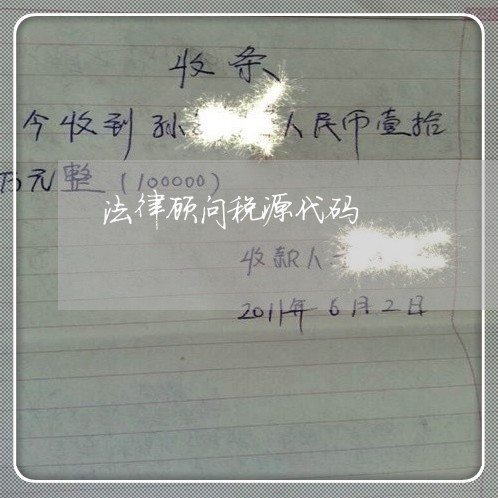 收条
今收到孙人民币壹拾
万元整（100000）
法律顾问税源代码
收款人
2011年6月2日